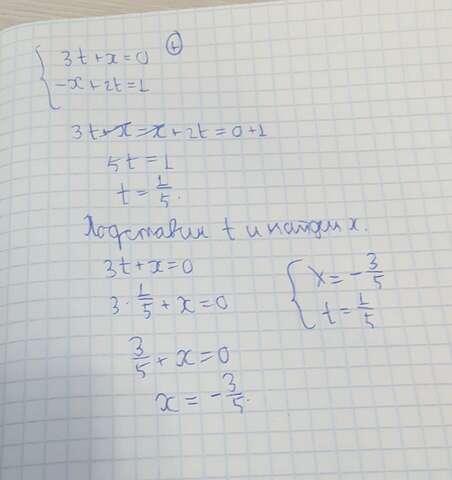 3t+x=0 (+)
-x+2t=1
3t+x-x+2t=0+1
5t=1
t=1/5.
Подставим t и найдем x.
3t+x=0
3·1/5+x=0
3/5+x=0
x=-3/5.
x=-3/5
t=1/5